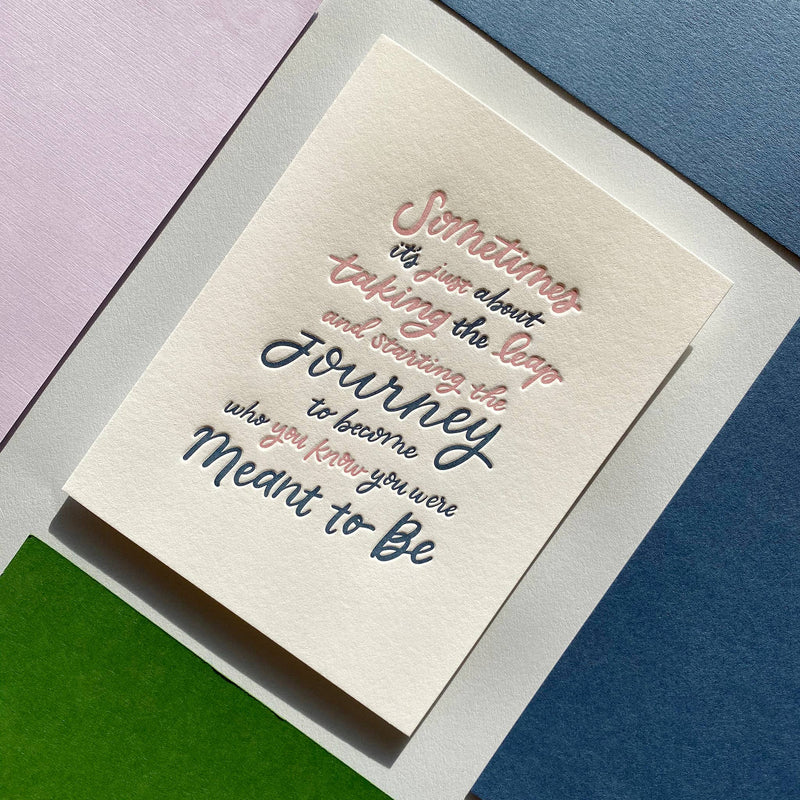 Sometimes
it's just about
taking the leap
and starting the
Journey
to become
who you know you were
Meant to Be